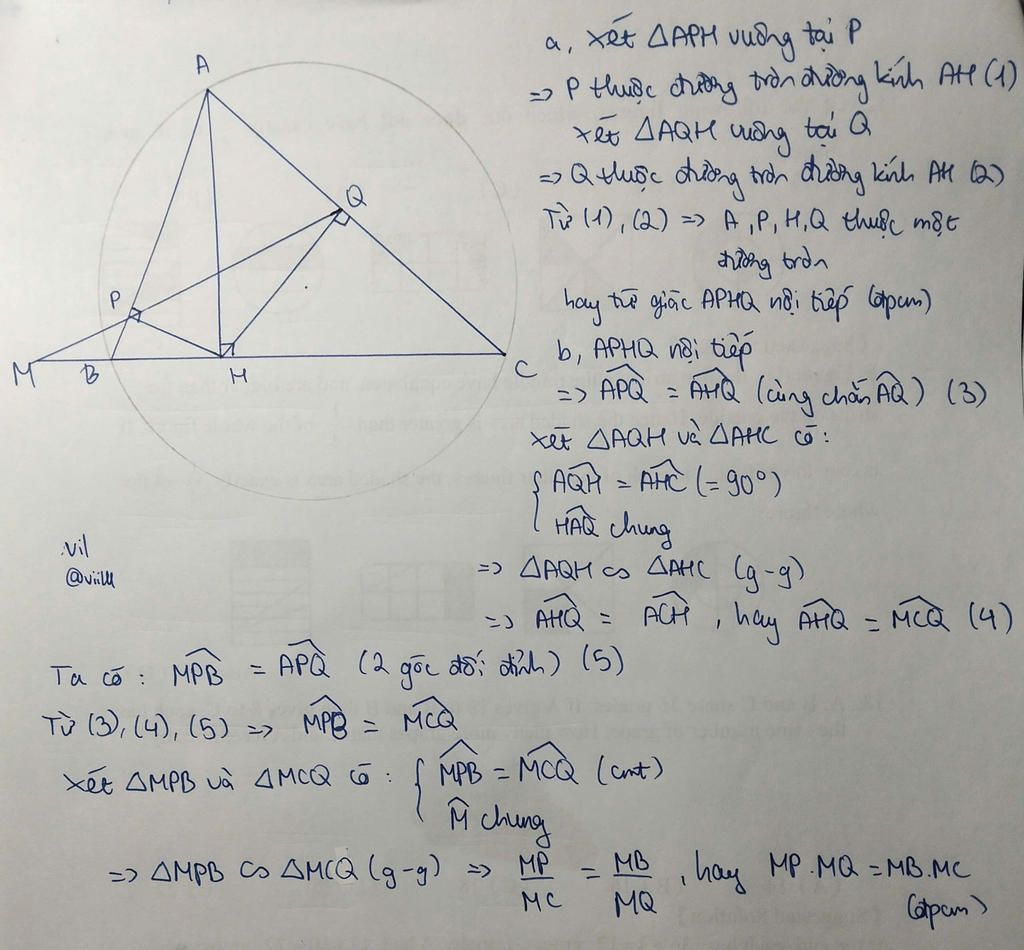 A
Q
P
M
B
H
C
a, Xét △APH vuông tại P
=> P thuộc đường tròn đường kính AH (1)
Xét △AQH vuông tại Q
=> Q thuộc đường tròn đường kính AH (2)
Từ (1), (2) => A, P, H, Q thuộc một
đường tròn
hay tứ giác APHQ nội tiếp (đpcm)
b, APHQ nội tiếp
=> \widehat{APQ} = \widehat{AHQ} (cùng chắn \widehat{AQ}) (3)
Xét △AQH và △AHC có:
{ \widehat{AQH} = \widehat{AHC} (= 90°)
\widehat{HAQ} chung
=> △AQH ∽ △AHC (g-g)
=> \widehat{AHQ} = \widehat{ACH}, hay \widehat{AHQ} = \widehat{MCQ} (4)
.vil
Ta có: \widehat{MPB} = \widehat{APQ} (2 góc đối đỉnh) (5)
Từ (3), (4), (5) => \widehat{MPB} = \widehat{MCQ}
Xét △MPB và △MCQ có: { \widehat{MPB} = \widehat{MCQ} (cmt)
\widehat{M} chung
=> △MPB ∽ △MCQ (g-g) => \frac{MP}{MC} = \frac{MB}{MQ}, hay MP.MQ = MB.MC
(đpcm)